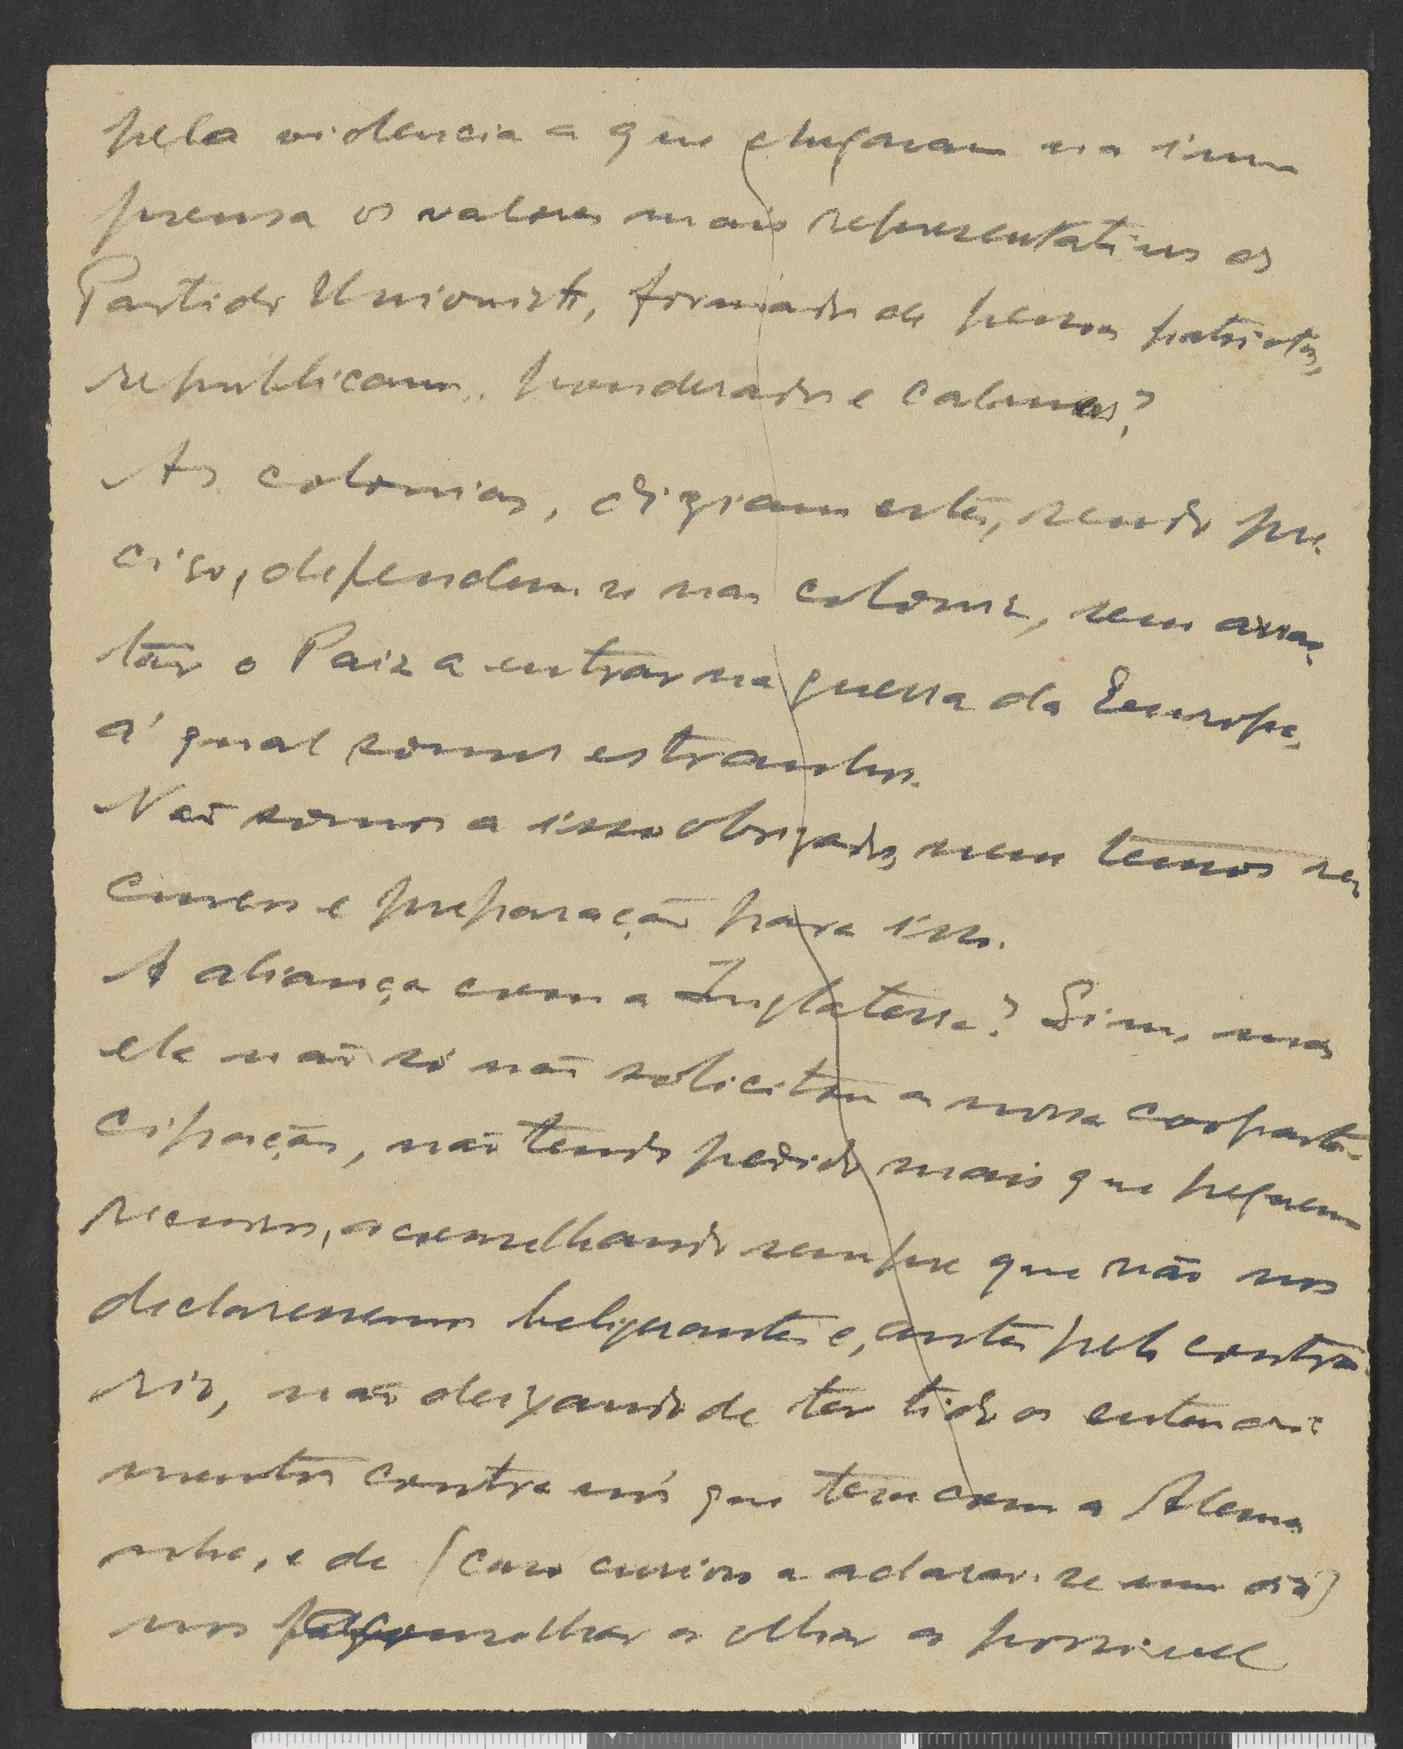 pela violencia a que chegaram na im
prensa os valores mais representativos do
Partido Unionista, formado de pessoas patriotas,
republicanas, ponderados e calmas?
As colonias, diziam estes, sendo pre
ciso, defendem-se nas colonias, sem arras
tar o Paiz a entrar na guerra da Europa,
á qual somos estranhos.
Não somos a isso obrigados, nem temos re
cursos e preparação para isso.
A aliança com a Inglaterra? Sim, mas
ela não só não solicitou a nossa coparti-
cipação, não tendo pedido mais que pequenos
recursos, aconselhando sempre que não nos
declarassemos beligerantes e, antes pelo contra
rio, não deixando de ter tido os entendi
mentos contra nós que teve com a Alema
nha, e de (caso curioso a aclarar-se um dia)
nos aconselhar a olhar a possivel